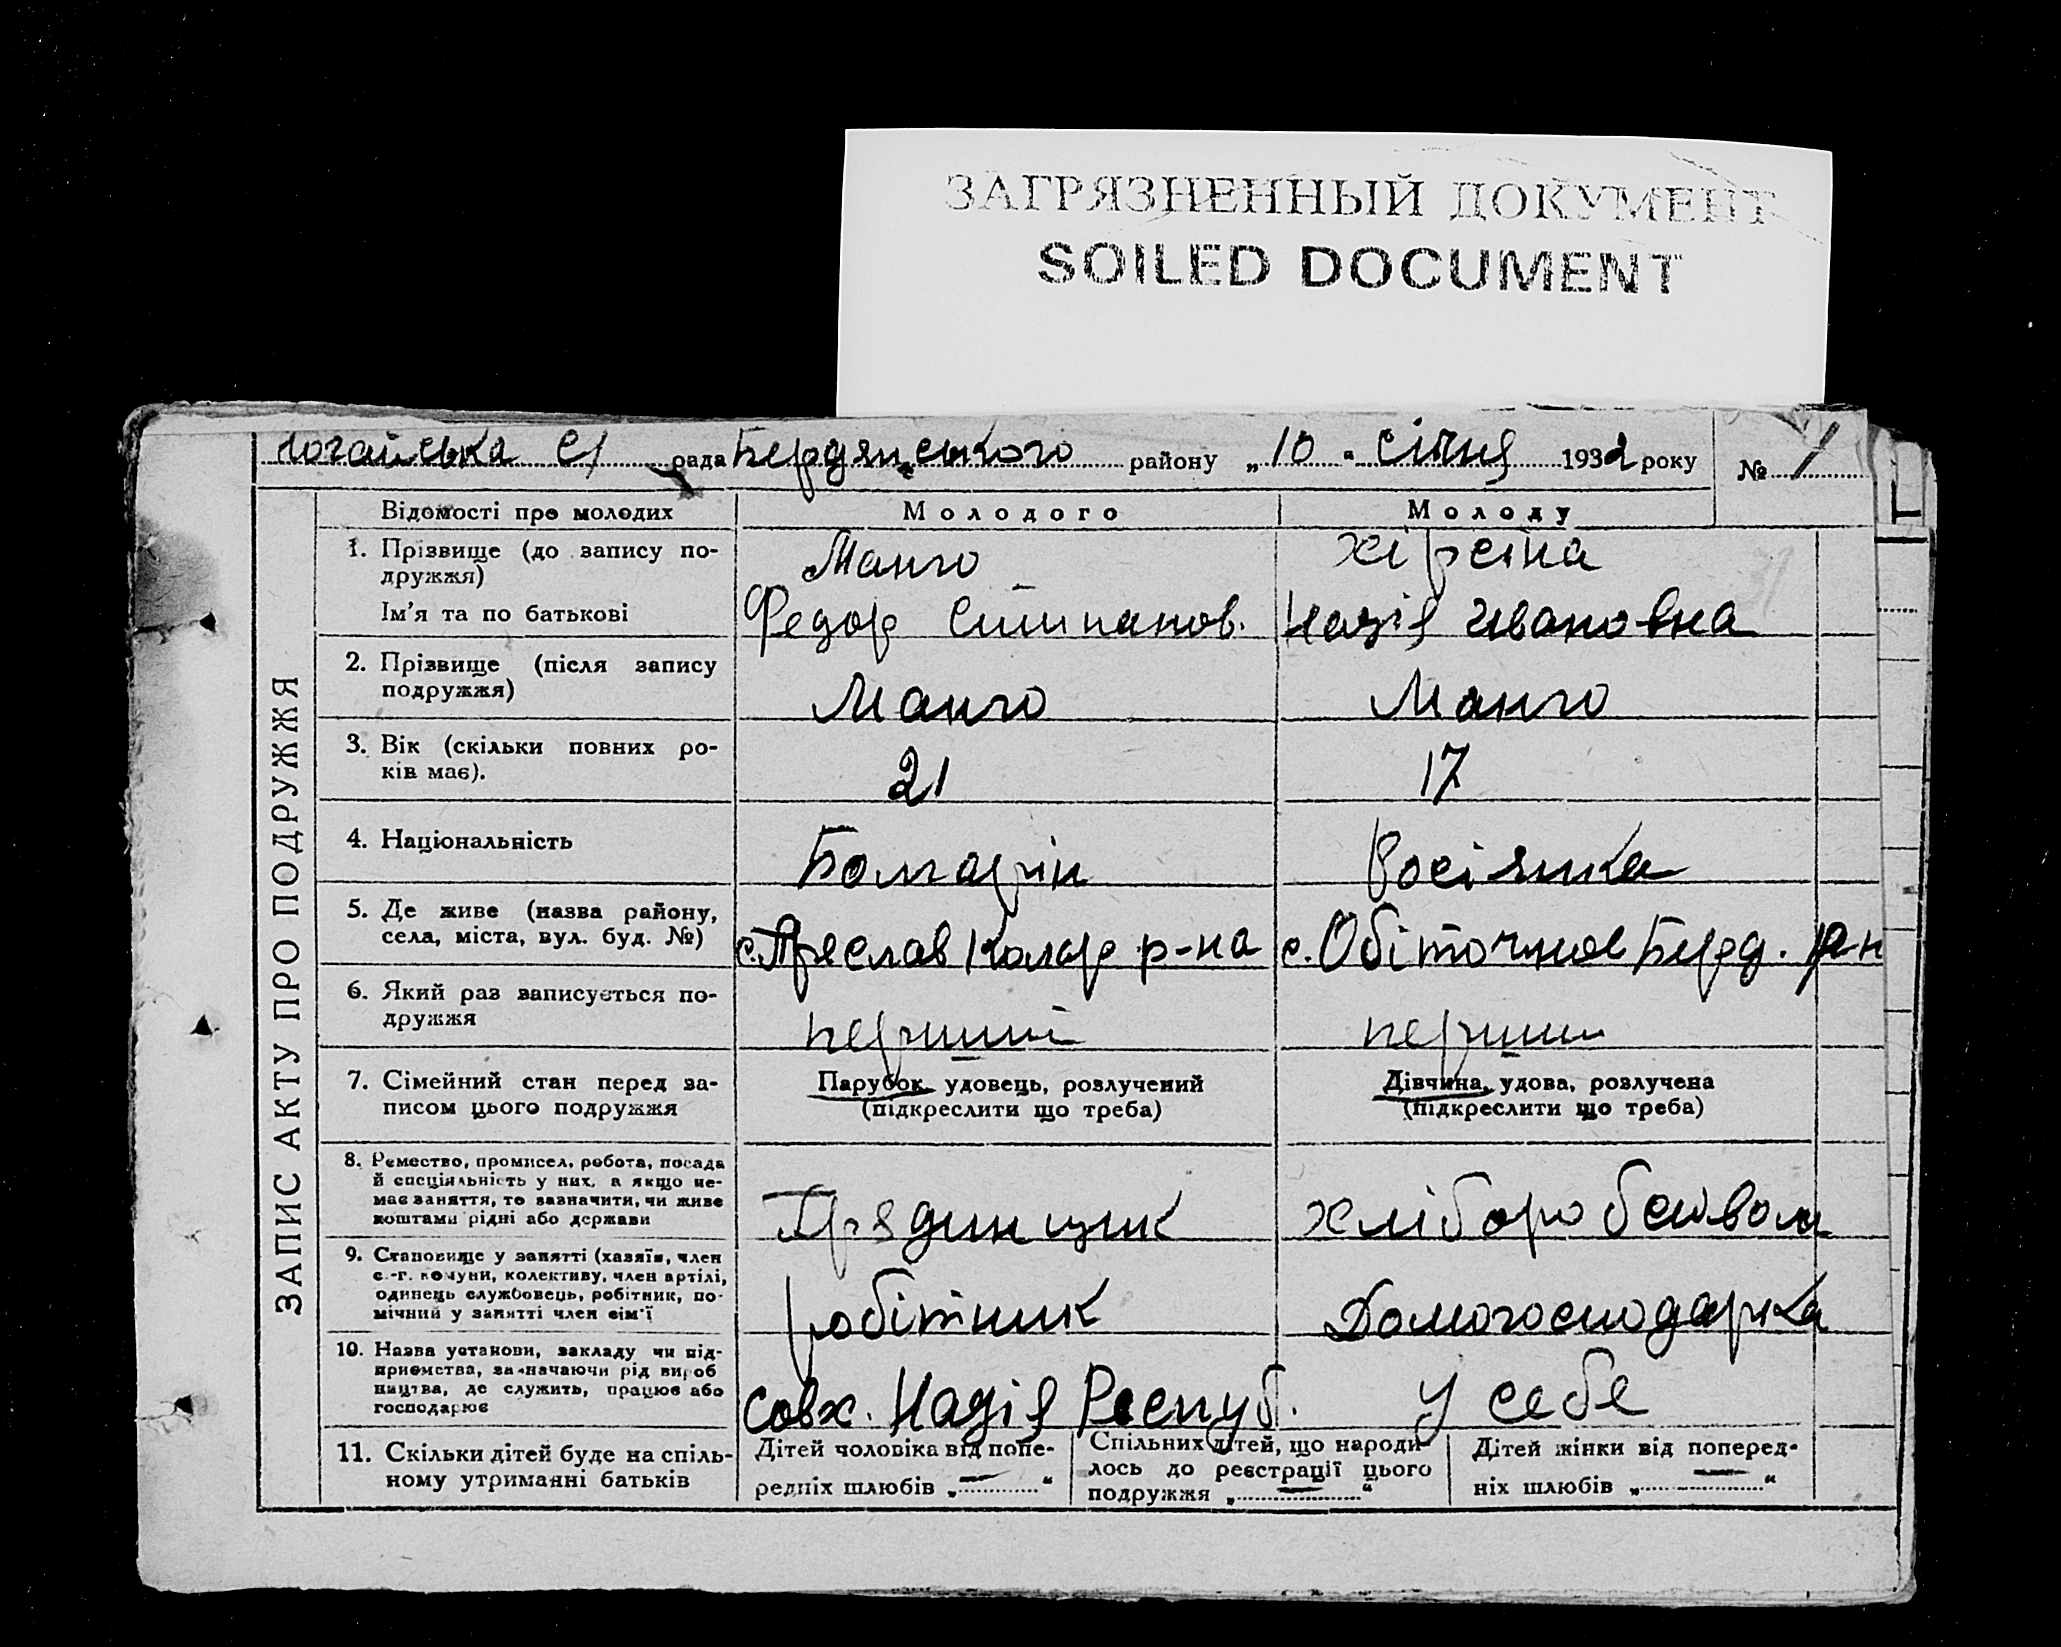 ЗАГРЯЗНЕННЫЙ ДОКУМЕНТ
SOILED DOCUMENT
рада Бердянського району „10“ січня 1932 року № 1
ЗАПИС АКТУ ПРО ПОДРУЖЖЯ
Відомості про молодих Молодого Молоду
1. Прізвище (до запису по-
дружжя)
Манго
Ім’я та по батькові
Федор
Надія Ивановна
2. Прізвище (після запису
подружжя)
Манго Манго
3. Вік (скільки повних ро-
ків має).
21 17
4. Національність
Болгарін Росіянка
5. Де живе (назва району,
села, міста, вул. буд. №)
с. Преслав Колар р-на с. Обіточное Берд. р-н
6. Який раз записується по-
дружжя
перший перший
7. Сімейний стан перед за-
писом цього подружжя
Парубок, удовець, розлучений
(підкреслити що треба)
Дівчина, удова, розлучена
(підкреслити що треба)
8. Ремество, промисел, робота, посада
й спеціяльність у них, а якщо не-
має заняття, то зазначити, чи живе
коштами рідні або держави
9. Становище у занятті (хазяїн, член
с.-г. комуни, колективу, член артілі,
одинець службовець, робітник, по-
мічний у занятті член сім’ї
робітник Домогосподарка
10. Назва установи, закладу чи під-
приємства, зазначаючи рід вироб
ництва, де служить, працює або
господарює
совх. Надія Респуб. У себе
11. Скільки дітей буде на спіль-
ному утриманні батьків
Дітей чоловіка від попе-
редніх шлюбів „—“
Спільних дітей, що народи-
лось до реєстрації цього
подружжя „—“
Дітей жінки від поперед-
ніх шлюбів „—“